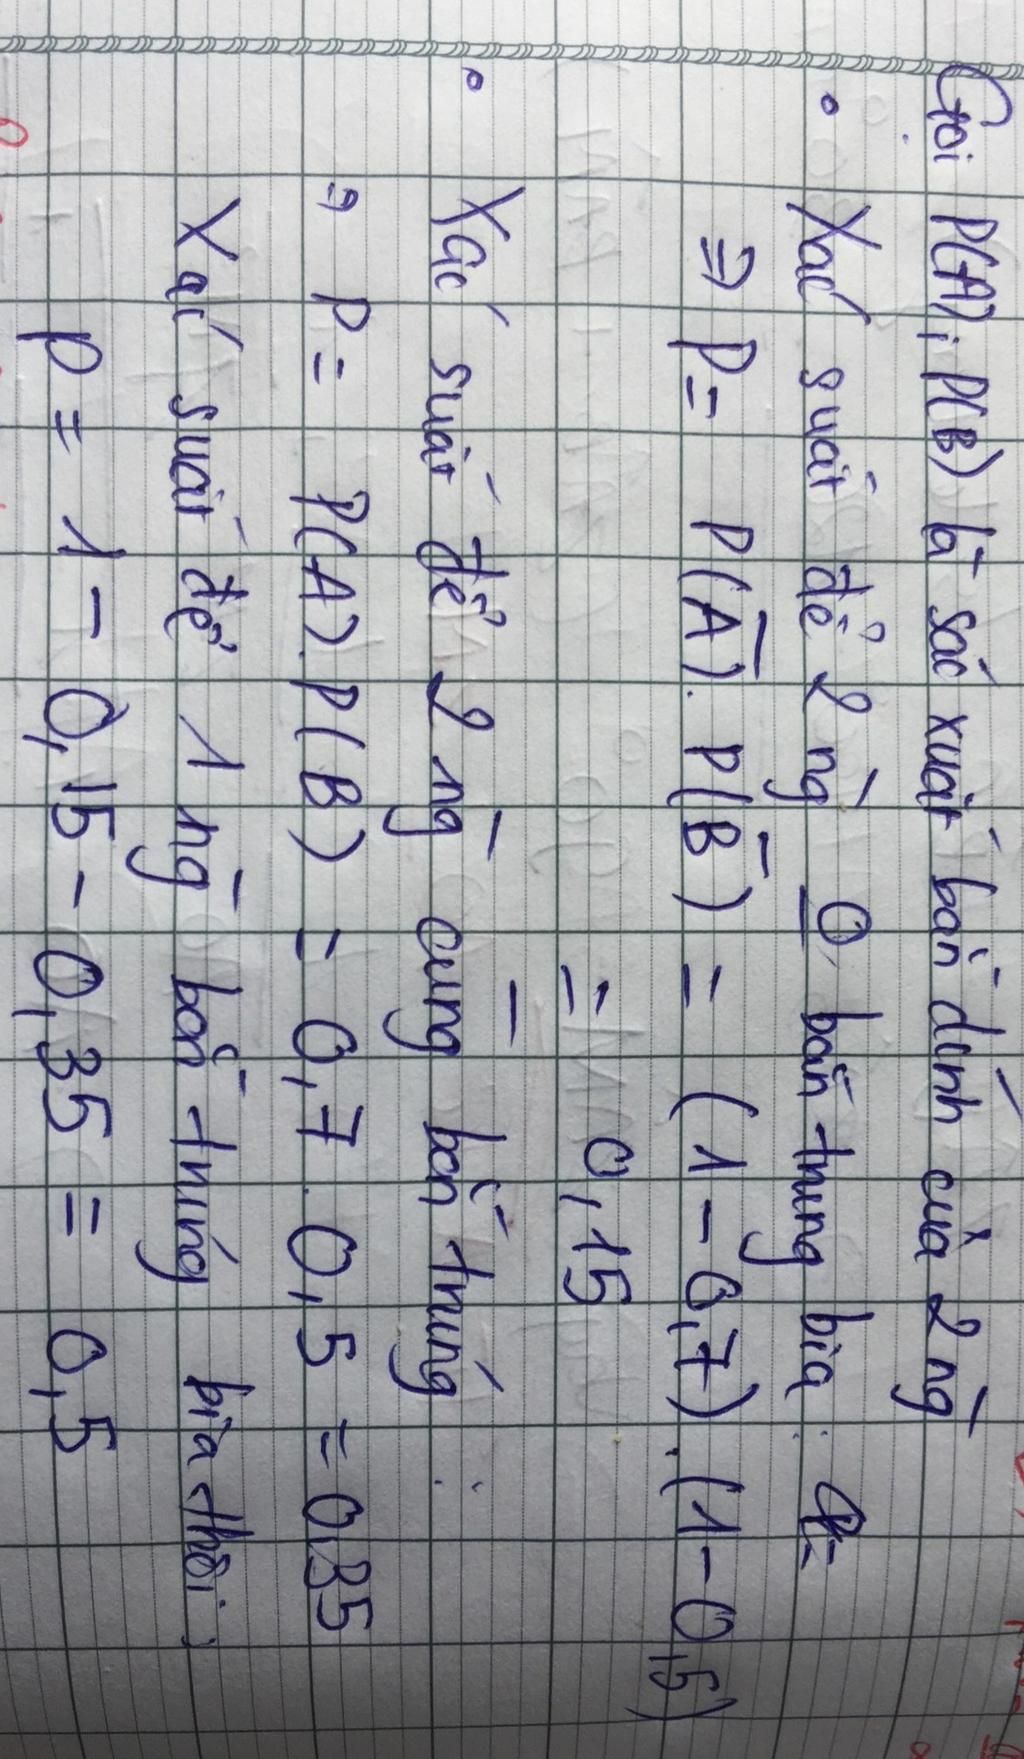 Gọi P(A), P(B) là sác xuất bắn dính của 2 ng̅
• Xác suất để 2 ng̅ O bắn trúng bia:
⇒ P = P(A̅). P(B̅) = (1 - 0,7).(1 - 0,5)
= 0,15
• Xác suất để 2 ng̅ cùng bắn trúng:
⇒ P = P(A).P(B) = 0,7.0,5 = 0,35
Xác suất để 1 ng̅ bắn trúng bia thôi:
P = 1 - 0,15 - 0,35 = 0,5